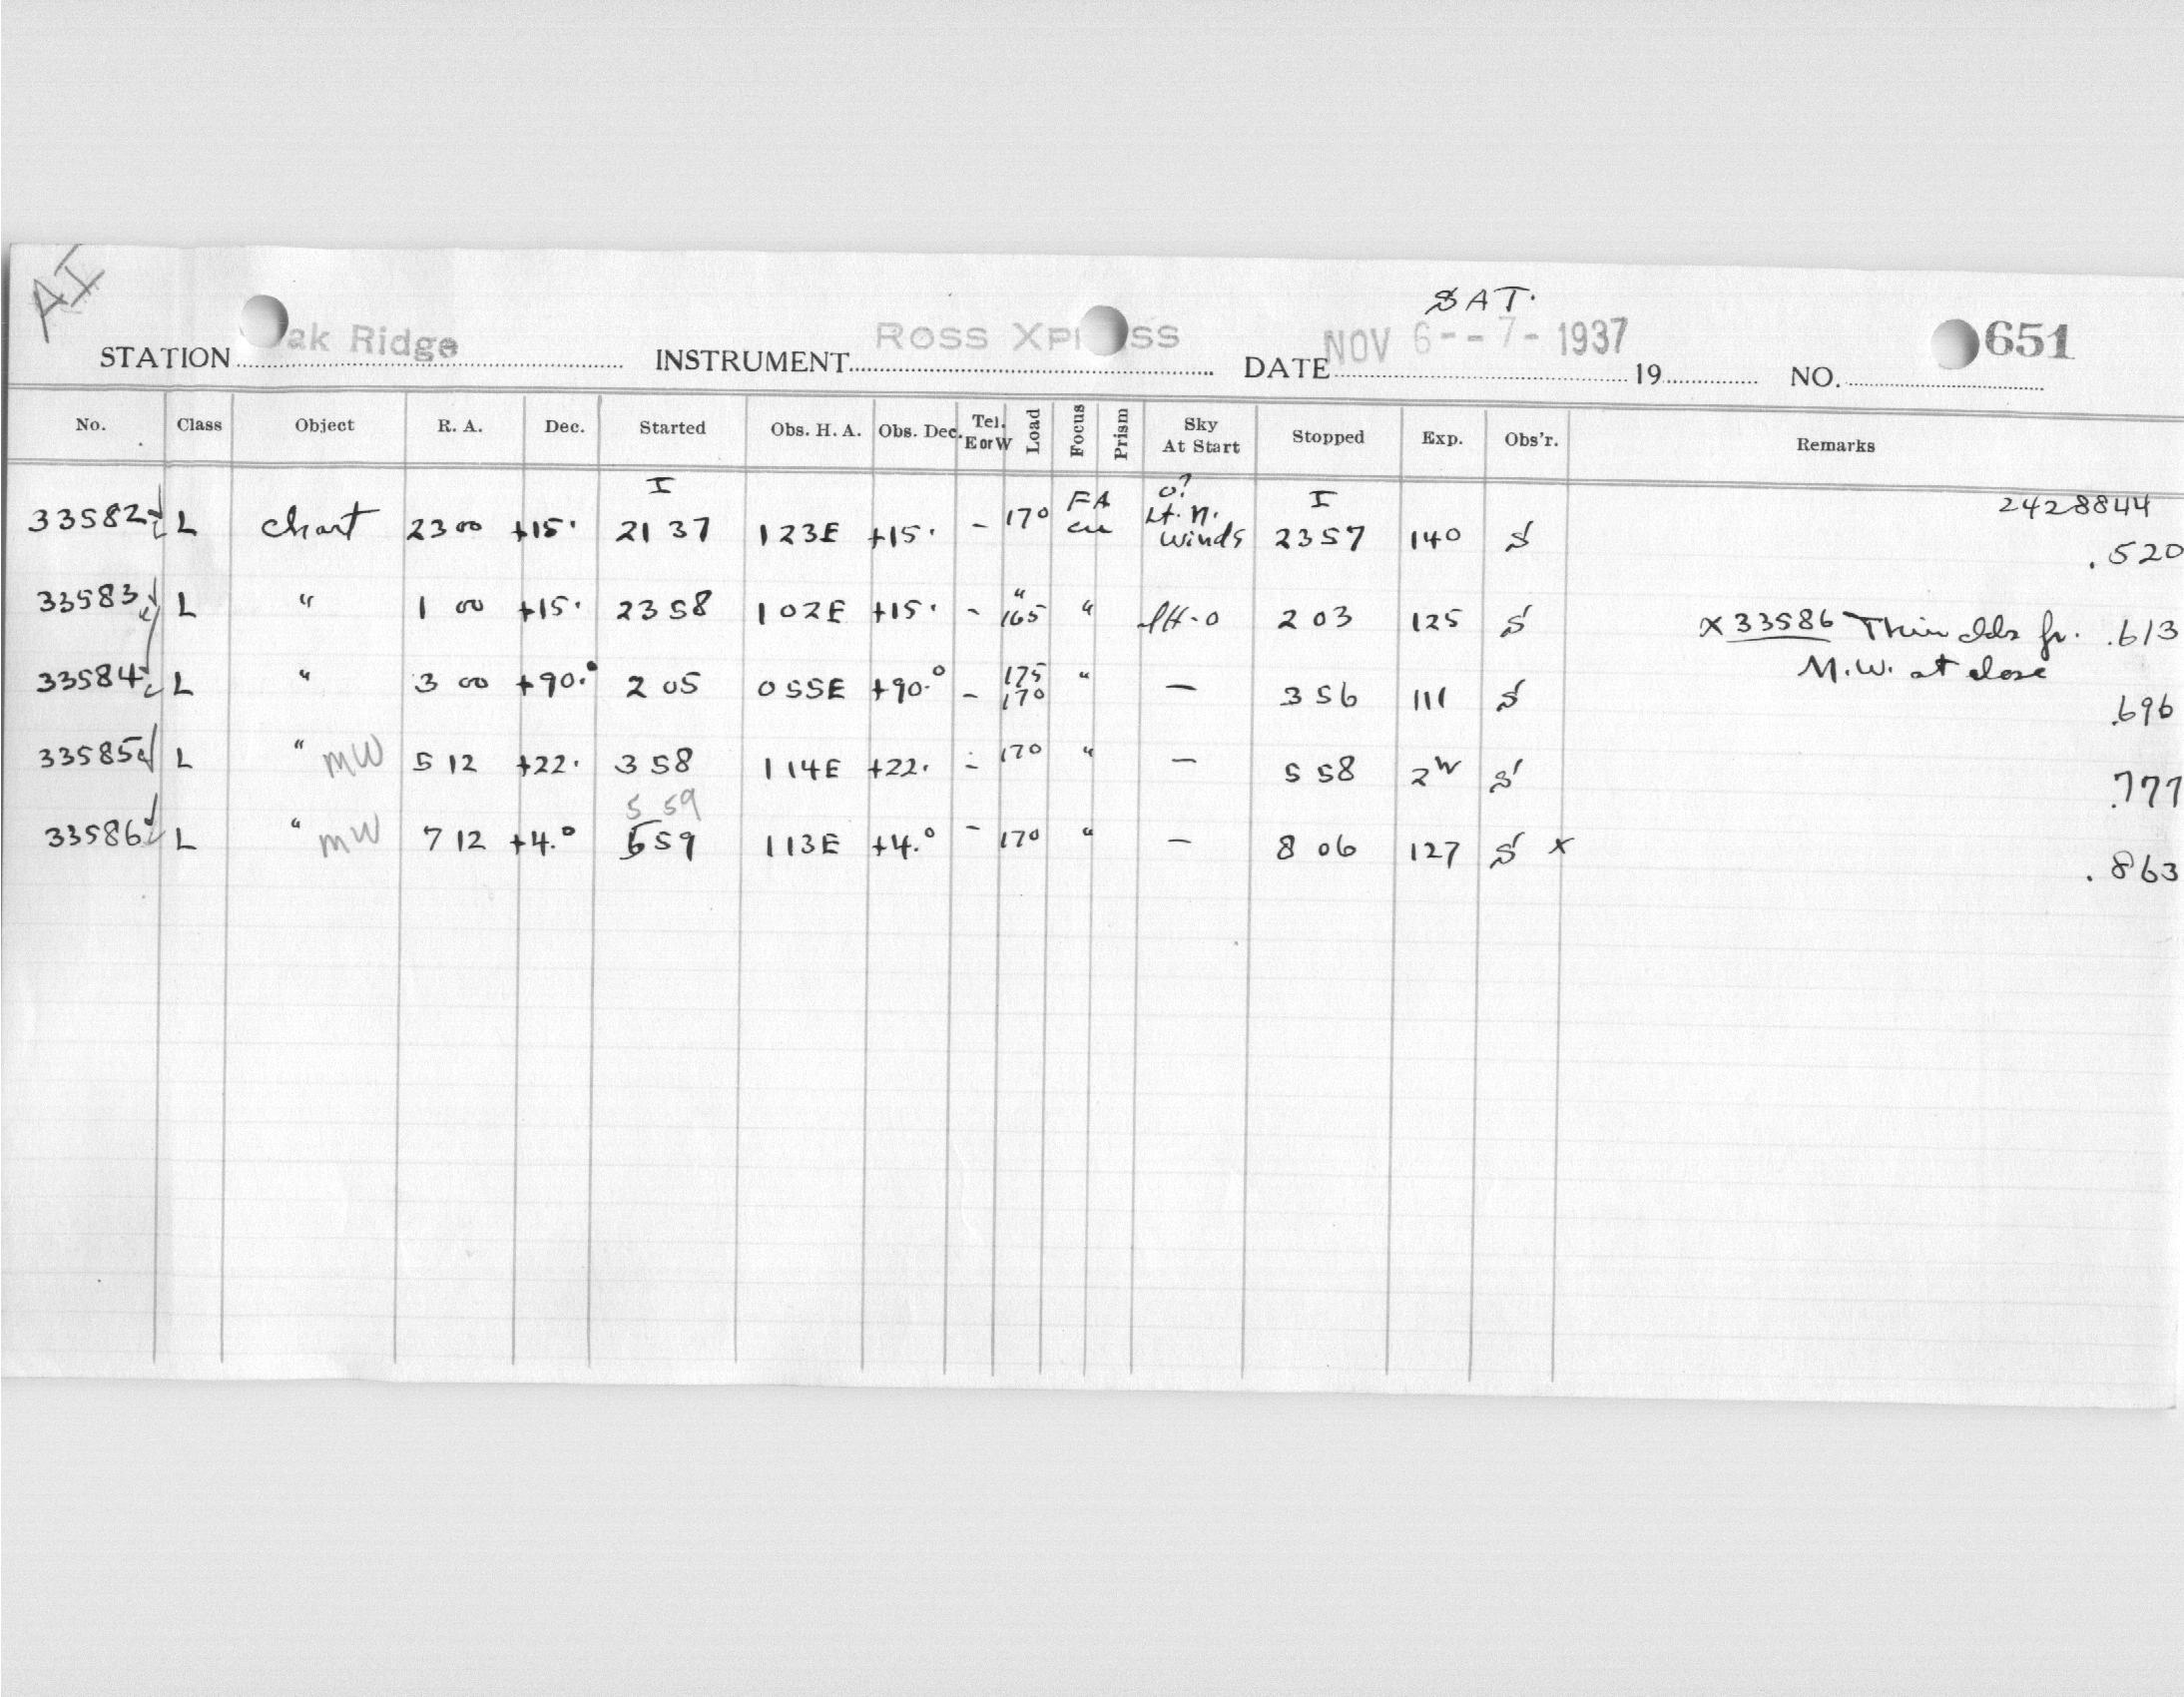 AI
SAT.
STATION ak Ridge INSTRUMENT Ross Xp ss DATE NOV 6--7-1937 19 NO. 651
No. Class Object R. A. Dec. Started Obs. H. A. Obs. Dec. Tel. E or W Load Focus Prism Sky At Start Stopped Exp. Obs'r. Remarks
I o? I 2428844
33582 L Chart 23 00 +15° 21 37 1 23E +15° - 170 FA Lt. N. winds 23 57 140 S .520
33583 L " 1 00 +15° 23 58 1 02E +15° - " 165 " 2 03 125 S x 33586 Thin clds fr. .613
M.W. at close
33584 L " 3 00 +90.° 2 05 0 55E +90.° - 175 170 " — 3 56 111 S .696
33585 L " MW 5 12 +22° 3 58 1 14E +22° - 170 " — 5 58 2 S .777
5 59
33586 L " MW 7 12 +4.° 5 59 1 13E +4.° - 170 " — 8 06 127 S x .863